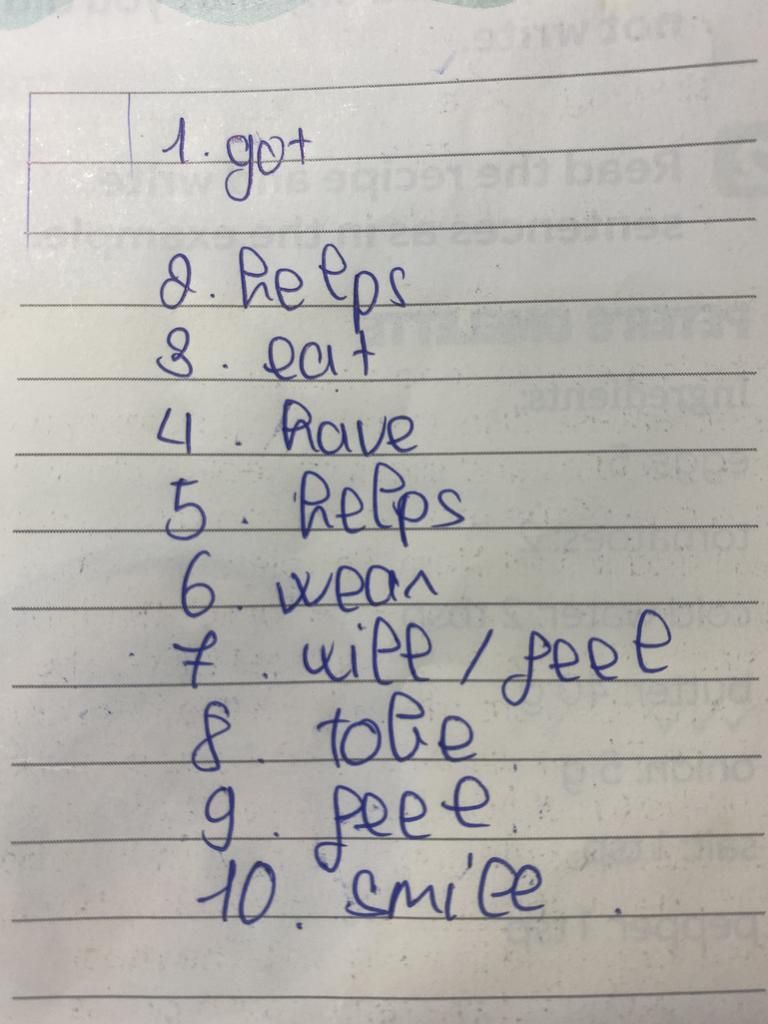 1. got
2. helps
3. eat
4. have
5. helps
6. wear
7. will / feel
8. tobe
9. feel
10. smile.